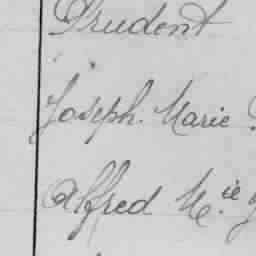 Prudent
Joseph. Marie
Alfred M.ie